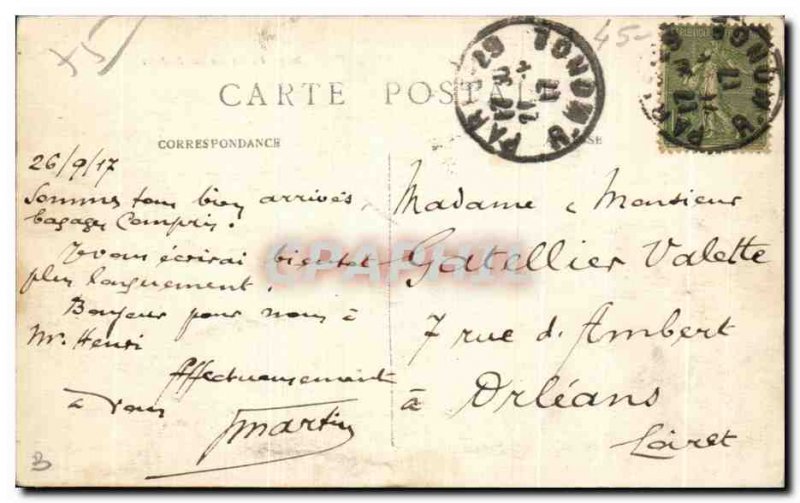 45-
CARTE POSTALE
CORRESPONDANCE
26/9/17
Sommes tous bien arrivés,
bagages Compris.
Je vous écrirai bientot
plus longuement.
Bonjour pour nous à
Mr. Henri
Affectueusement
à vous
Martin
Madame & Monsieur
Gatellier Valette
7 rue d'Ambert
à Orléans
Loiret
B
CPAPHIL